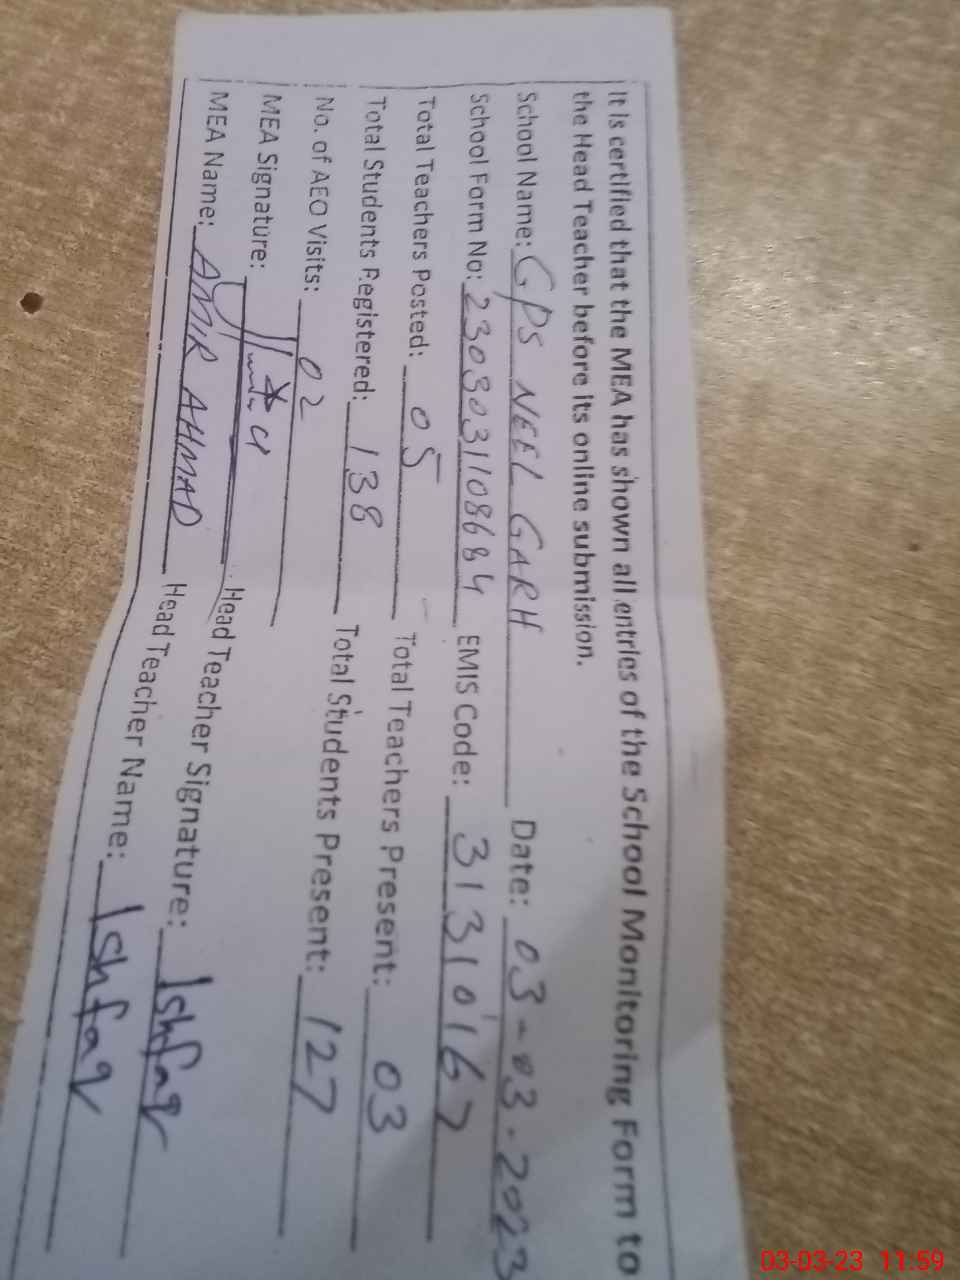 It is certified that the MEA has shown all entries of the School Monitoring Form to
the Head Teacher before its online submission.
School Name: GPS NEEL GARH Date: 03-03-2023
School Form No: 2303031108684 EMIS Code: 31310167
Total Teachers Posted: 05 Total Teachers Present: 03
Total Students Registered: 138 Total Students Present: 127
No. of AEO Visits: 02
MEA Signature: Head Teacher Signature: Ishfaq
MEA Name: AMIR AHMAD Head Teacher Name: Ishfaq
03-03-23 11:59